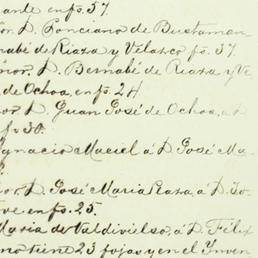 ante en fs. 57.
or. D. Ponciano de Bustaman
nabé de Riaza y Velazco fs. 37.
ñor. D. Bernabé de Riaza y Ve
de Ochoa, en fs. 24.
or D. Juan José de Ochoa, á D
fs 30.
Ygnacio Maciel á D. José Ma
or D. José Maria Raza, á D. Jo
ve en fs. 25.
Maria de Valdivielso, á D. Félix
no tiene 23 fojas y en el Ynven